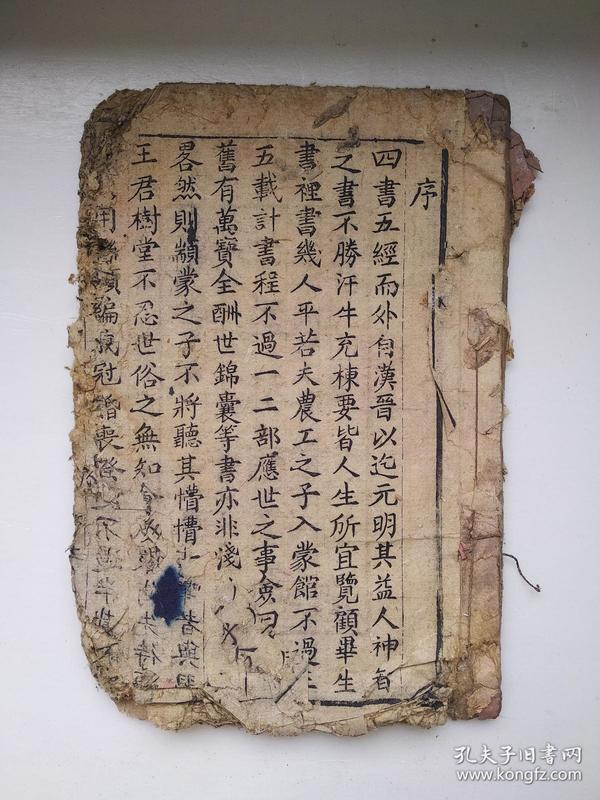 序
四書五經而外自漢晉以迄元明其益人神智
之書不勝汗牛充棟要皆人生所宜覽顧畢生
書裡書幾人乎若夫農工之子入蒙館不過三
五載計書程不過一二部應世之事僉曰
舊有萬寶全酬世錦囊等書亦非淺
畧然則顓蒙之子不將聽其懵懵者與
王君樹堂不忍世俗之無知
用婚喪不
孔夫子旧书网
www.kongfz.com